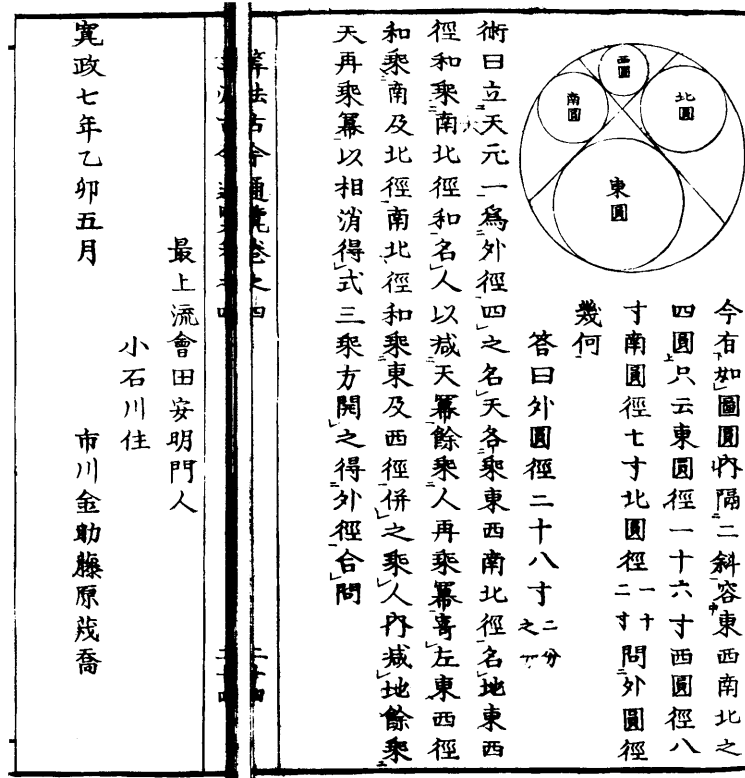 西圓
北圓
南圓
東圓
今有如圖圓內隔二斜容東西南北之
四圓只云東圓徑一十六寸西圓徑八
寸南圓徑七寸北圓徑一十二寸問外圓徑
幾何
答曰外圓徑二十八寸二分之一
術曰立天元一爲外徑四之名天各乘東西南北徑名地東西
徑和乘南北徑和名人以減天冪餘乘人再乘冪寄左東西徑
和乘南及北徑南北徑和乘東及西徑併之乘人內減地餘乘
天再乘冪以相消得式三乘方開之得外徑合問
算法古今通覽卷之四
最上流會田安明門人
小石川住
市川金助藤原茂喬
寛政七年乙卯五月